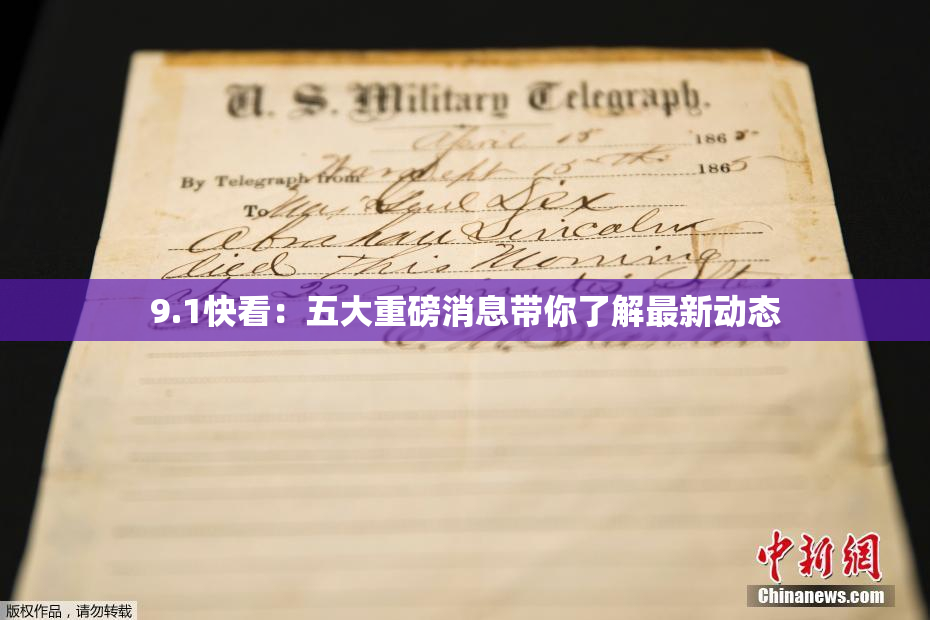 U. S. Military Telegraph.
April 15 1865
By Telegraph from War Dept 15th 1865
To Maj Genl Dix
Abraham Lincoln
died This Morning
at 22 minutes after
9.1快看：五大重磅消息带你了解最新动态
E. M. Stanton
中新網
Chinanews.com
版权作品，请勿转载